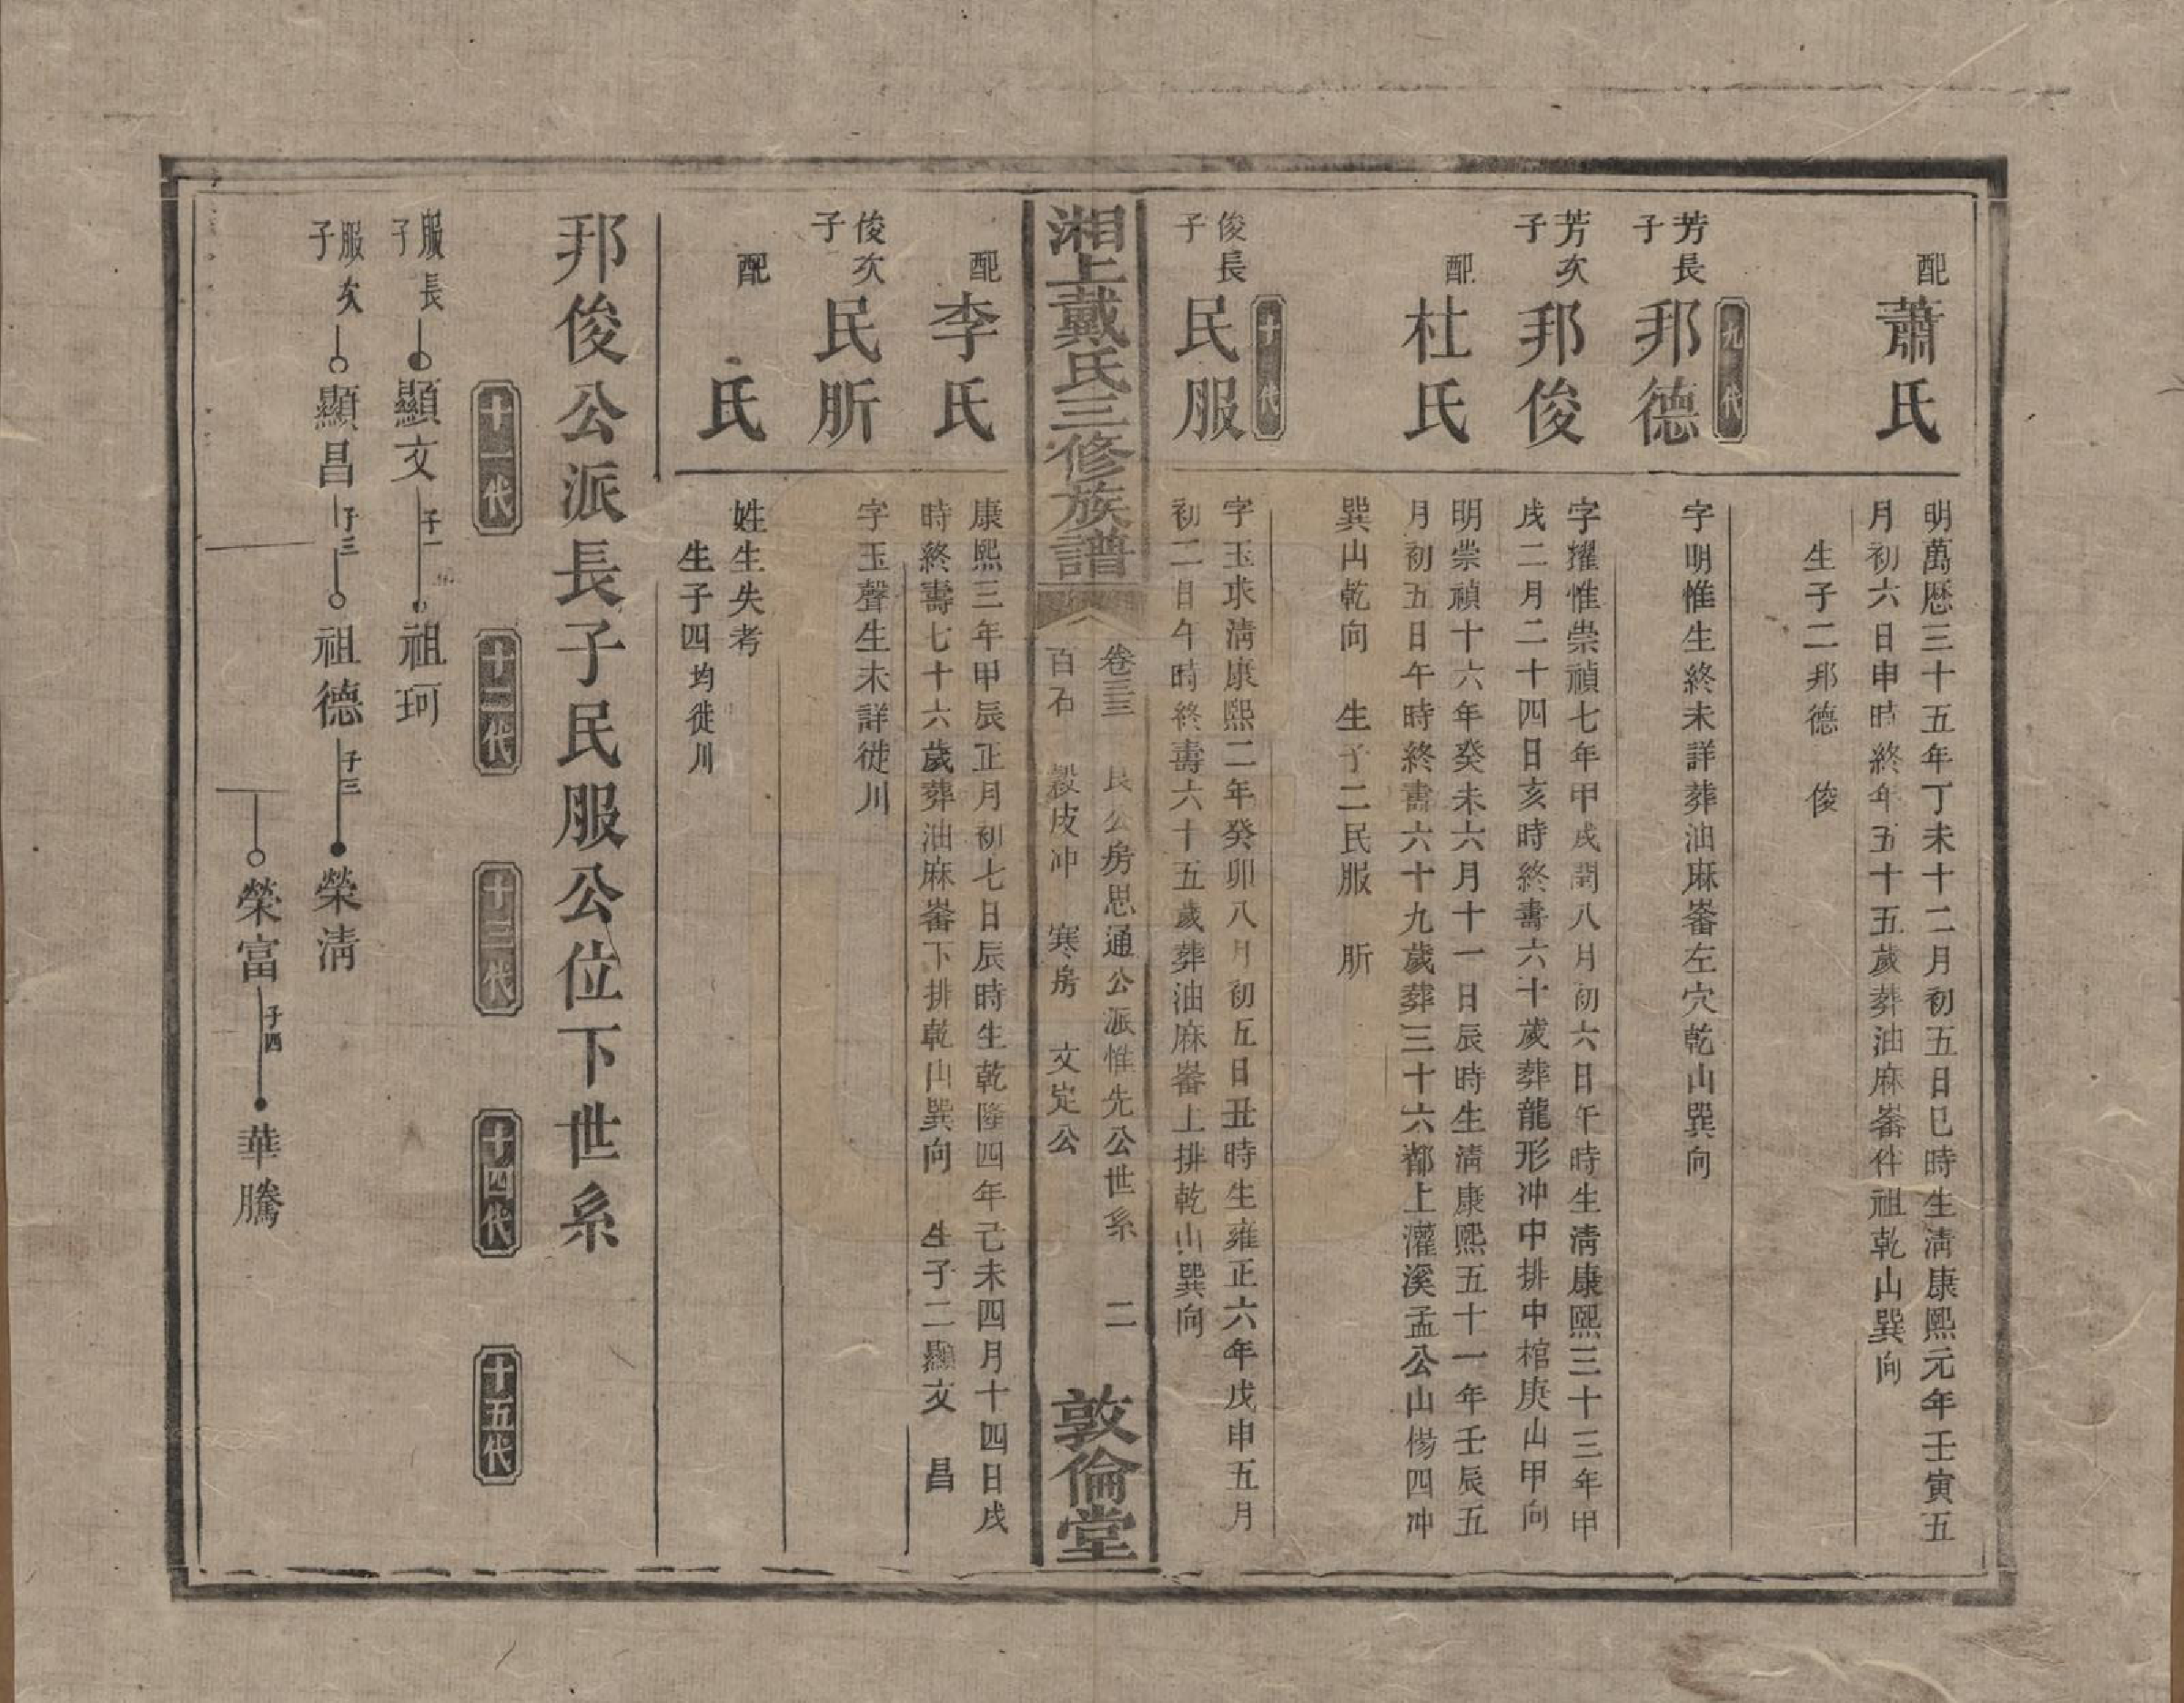 配
蕭氏
明萬歷三十五年丁未十二月初五日巳時生清康熙元年壬寅五
月初六日申時終年五十五歲葬油麻崙伴祖乾山巽向
生子二邦德　俊
九代
芳長子
邦德
字明惟生終未詳葬油麻崙左穴乾山巽向
芳次子
邦俊
字耀惟崇禎七年甲戌閏八月初六日午時生清康熙三十三年甲
戌二月二十四日亥時終壽六十歲葬龍形冲中排中棺庚山甲向
配
杜氏
明崇禎十六年癸未六月十一日辰時生清康熙五十一年壬辰五
月初五日午時終壽六十九歲葬三十六都上灌溪孟公山㑥四冲
巽山乾向　生子二民服　昕
十代
俊長子
民服
字玉求清康熙二年癸卯八月初五日丑時生雍正六年戊申五月
初二日午時終壽六十五歲葬油麻崙上排乾山巽向
湘上戴氏三修族譜
卷三三　良公房思通公派惟先公世系　二
百石　穀皮冲　寒房　文定公
敦倫堂
配
李氏
康熙三年甲辰正月初七日辰時生乾隆四年己未四月十四日戌
時終壽七十六歲葬油麻崙下排乾山巽向　生子二顯文　昌
俊次子
民昕
字玉聲生未詳徙川
配
氏
姓生失考
生子四均徙川
邦俊公派長子民服公位下世系
十一代
十二代
十三代
十四代
十五代
服長子　顯文　子一　祖珂
服次子　顯昌　子三　祖德　子三　榮清
榮富　子四　華騰